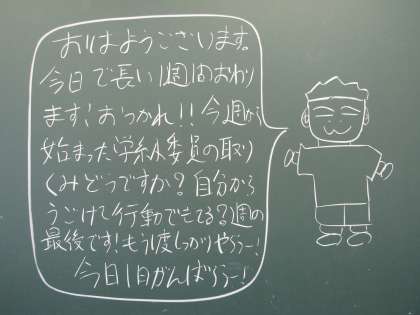 おはようございます。
今日で長い1週間おわり
ます！おつかれ!! 今週から
始まった学級委員の取り
くみどうですか？自分から
うごけて行動できてる？週の
最後です！もう1度しっかりやろうー！
今日1日がんばろうー！